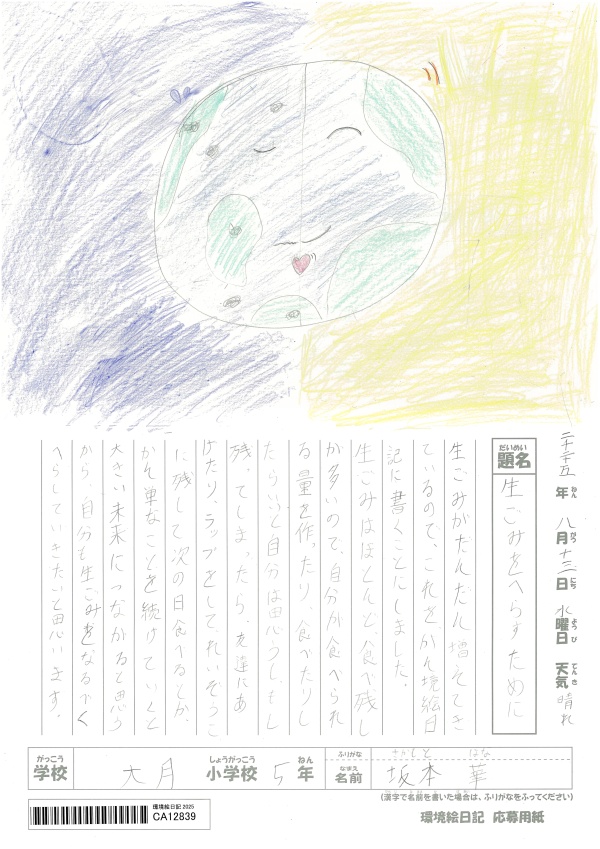 二十二五年ねん八月がつ十三日にち水曜日ようび天気てんき晴れ
題名だいめい 生ごみをへらすために
生ごみがだんだん増えてき
ているので、これをかん境絵日
記に書くことにしました。
生ごみはほとんど、食べ残し
が多いので、自分が食べられ
る量を作ったり、食べたりし
たらいいと自分は思うしもし
残してしまったら、友達にあ
げたり、ラップをしてれいぞうこ
に残して次の日食べるとか、
かん単なことを続けていくと
大きい未来につながると思う
から、自分も生ごみをなるべく
へらしていきたいと思います。
学校がっこう 大月 小学校しょうがっこう 5年ねん ふりがな さかもと はな
名前なまえ 坂本 華
(漢字で名前を書いた場合は、ふりがなをふってください)
環境絵日記 2025
CA12839
環境絵日記 応募用紙